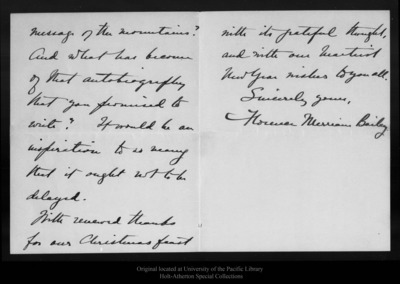 message of the mountains?
And what has become
of that autobiography
that you promised to
write? It would be an
inspiration to so many
that it ought not to be
delayed.
With renewed thanks
for our Christmas feast
with its grateful thought,
and with our heartiest
New Year wishes to you all.
Sincerely yours,
Florence Merriam Bailey
Original located at University of the Pacific Library
Holt-Atherton Special Collections